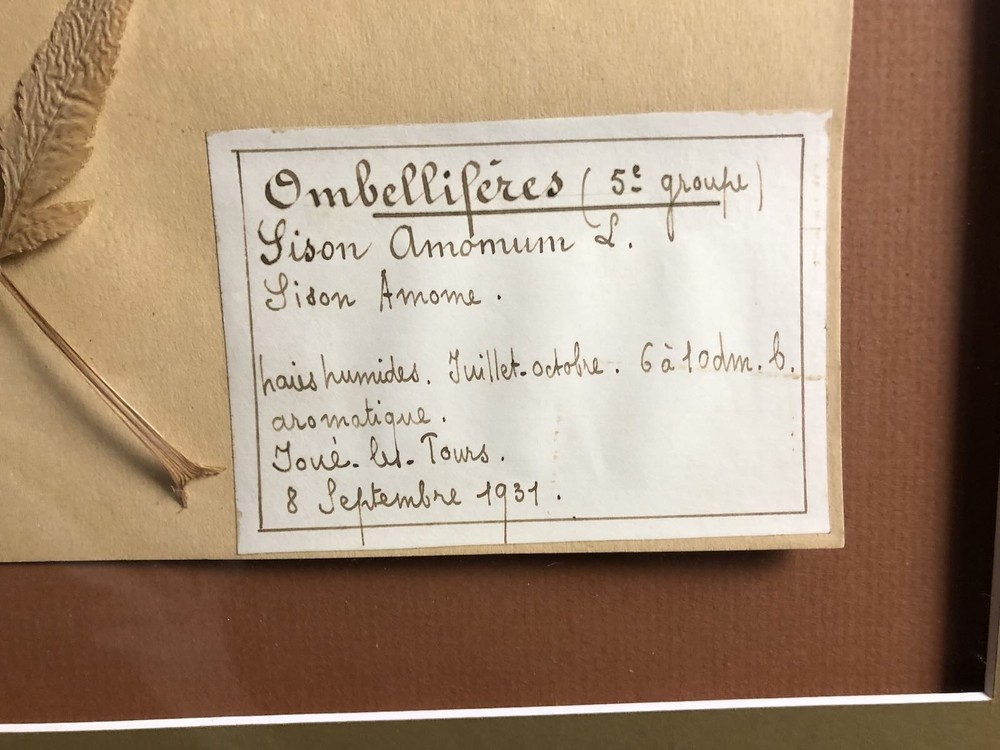 Ombellifères (5e groupe)
Sison Amomum L.
Sison Amome.
haies humides. Juillet-octobre. 6 à 10 dm. b.
aromatique.
Joué-les-Tours.
8 Septembre 1931.